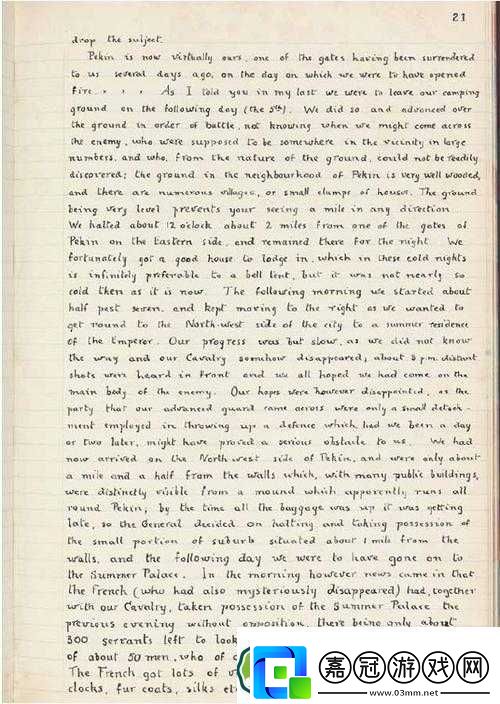 21
drop the subject.
Pekin is now virtually ours, one of the gates having been surrendered
to us several days ago, on the day on which we were to have opened
fire . . . . As I told you in my last we were to leave our camping
ground on the following day (the 5th). We did so and advanced over
the ground in order of battle, not knowing when we might come across
the enemy, who were supposed to be somewhere in the vicinity in large
numbers, and who, from the nature of the ground, could not be readily
discovered; the ground in the neighbourhood of Pekin is very well wooded,
and there are numerous villages, or small clumps of houses. The ground
being very level prevents your seeing a mile in any direction
We halted about 12 o'clock about 2 miles from one of the gates of
Pekin on the Eastern side, and remained there for the night. We
fortunately got a good house to lodge in, which in these cold nights
is infinitely preferable to a bell tent, but it was not nearly so
cold then as it is now. The following morning we started about
half past seven, and kept moving to the right as we wanted to
get round to the North-West side of the city to a summer residence
of the Emperor. Our progress was but slow, as we did not know
the way and our Cavalry somehow disappeared, about 3 p.m. distant
shots were heard in front and we all hoped we had come on the
main body of the enemy. Our hopes were however disappointed, as the
party that our advanced guard came across were only a small detach-
ment employed in throwing up a defence which, had we been a day
or two later, might have proved a serious obstacle to us. We had
now arrived on the North West side of Pekin, and were only about
a mile and a half from the walls which, with many public buildings,
were distinctly visible from a mound which apparently runs all
round Pekin; by the time all the baggage was up it was getting
late, so the General decided on halting and taking possession of
the small portion of suburb situated about 1 mile from the
walls, and the following day we were to have gone on to
the Summer Palace. In the morning however news came in that
the French (who had also mysteriously disappeared) had, together
with our Cavalry, taken possession of the Summer Palace the
previous evening without opposition, there being only about
300 servants left to look
of about 50 men, who of
The French got lots of
clocks, fur coats, silks
嘉冠游戏网
www.03mm.net